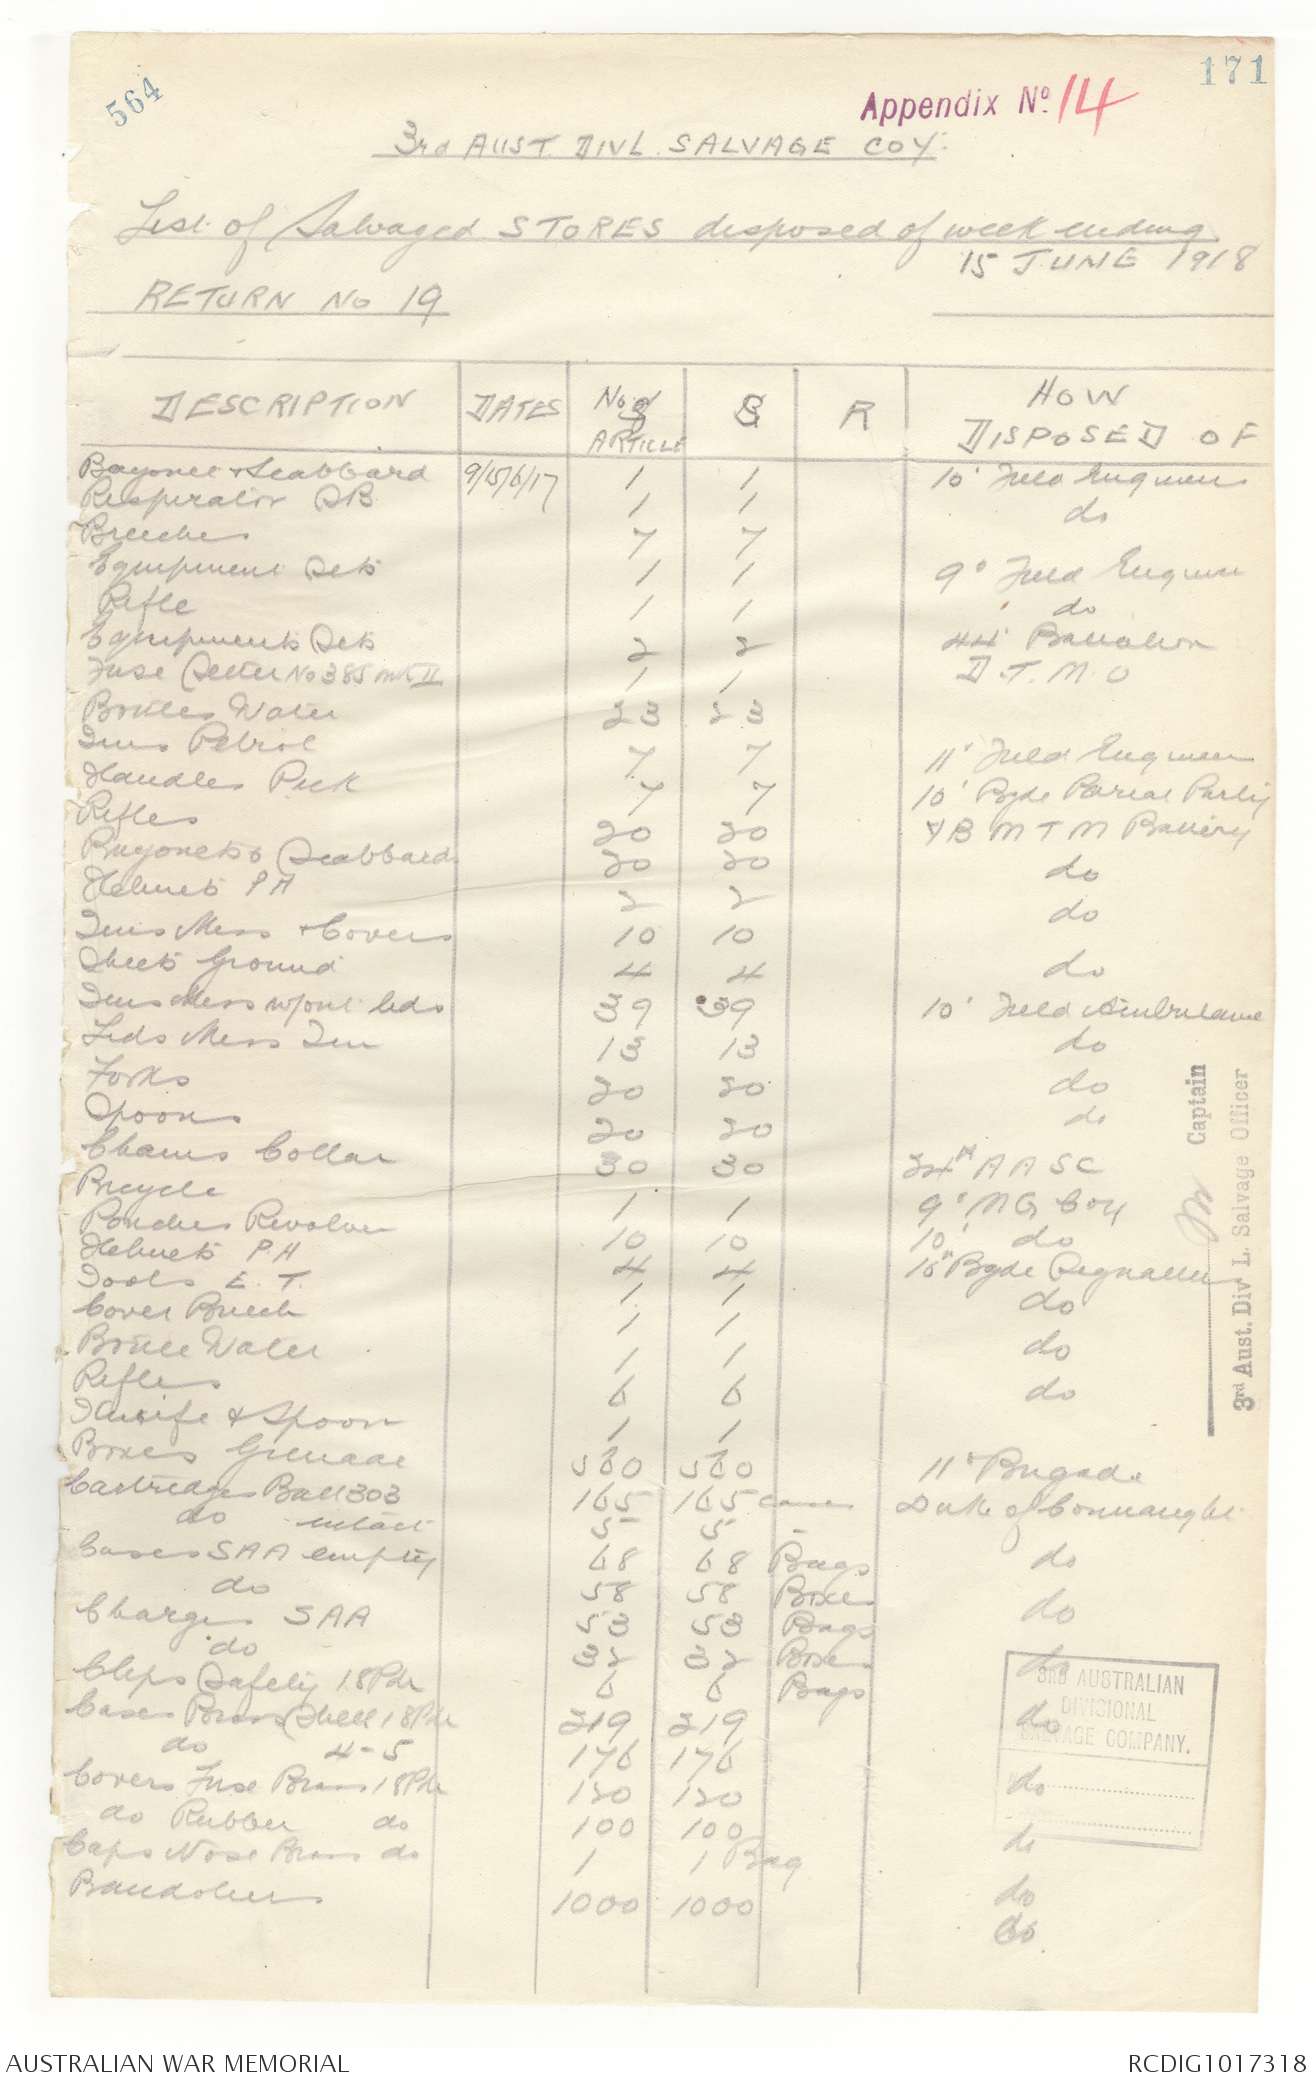 564
171
Appendix No. 14
3rd AUST. DIVL. SALVAGE COY.
List of Salvaged STORES disposed of week ending
15 JUNE 1918
RETURN No 19
DESCRIPTION DATES No of ARTICLE G R HOW DISPOSED OF
Bayonet & Scabbard 9/15/6/17 1 1 10' Field Engineers
Respirator SB 1 1 do
Breeches 7 7
Equipment Sets 1 1 9' Field Engineers
Rifle 1 1 do
Equipments Sets 2 2 44' Battalion
Fuse Setter No 385 mk II 1 1 D.T.M.O
Bottles Water 23 23
Tins Petrol 7 7 11' Field Engineers
Handles Pick 7 7 10' Bgde Burial Party
Rifles 20 20 B M T M Battery
Bayonets & Scabbards 20 20 do
Helmets P H 2 2 do
Tins Mess & Covers 10 10
Sheets Ground 4 4 do
Tins Mess w/out lids 39 39 10' Field Ambulance
Lids Mess Tin 13 13 do
Forks 20 20 do
Spoons 20 20 do
Chains Collar 30 30 24th A A S C
Bicycle 1 1 9' M G Coy
Pouches Revolver 10 10 10' do
Helmets P.H 4 4 10th Bgde Signallers
Tools E. T. 1 1 do
Cover Breech 1 1
Bottle Water 1 1 do
Rifles 6 6 do
Knife & Spoon 1 1
Boxes Grenade 560 560 11' Brigade
Cartridges Ball 303 165 165 cases Duke of Connaught
do intact 5 5 -
Cases SAA empty 68 68 Bags do
do 58 58 Boxes
Charges SAA 53 53 Bags do
do 32 32 Boxes
Clips Safety 18 Pdr 6 6 Bags do
Cases Brass Shell 18 Pdr 219 219 do
do 4-5 176 176
Covers Fuse Brass 18 Pdr 120 120 do
do Rubber do 100 100 do
Caps Nose Brass do 1 1 Bag
Bandoliers 1000 1000 do
do
Captain
3rd Aust. Div L. Salvage Officer
3RD AUSTRALIAN
DIVISIONAL
SALVAGE COMPANY.
AUSTRALIAN WAR MEMORIAL
RCDIG1017318